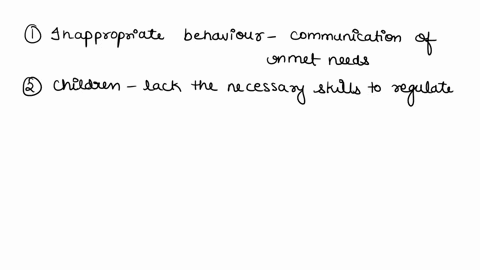 ① Inappropriate behaviour - communication of
unmet needs
② Children - lack the necessary skills to regulate